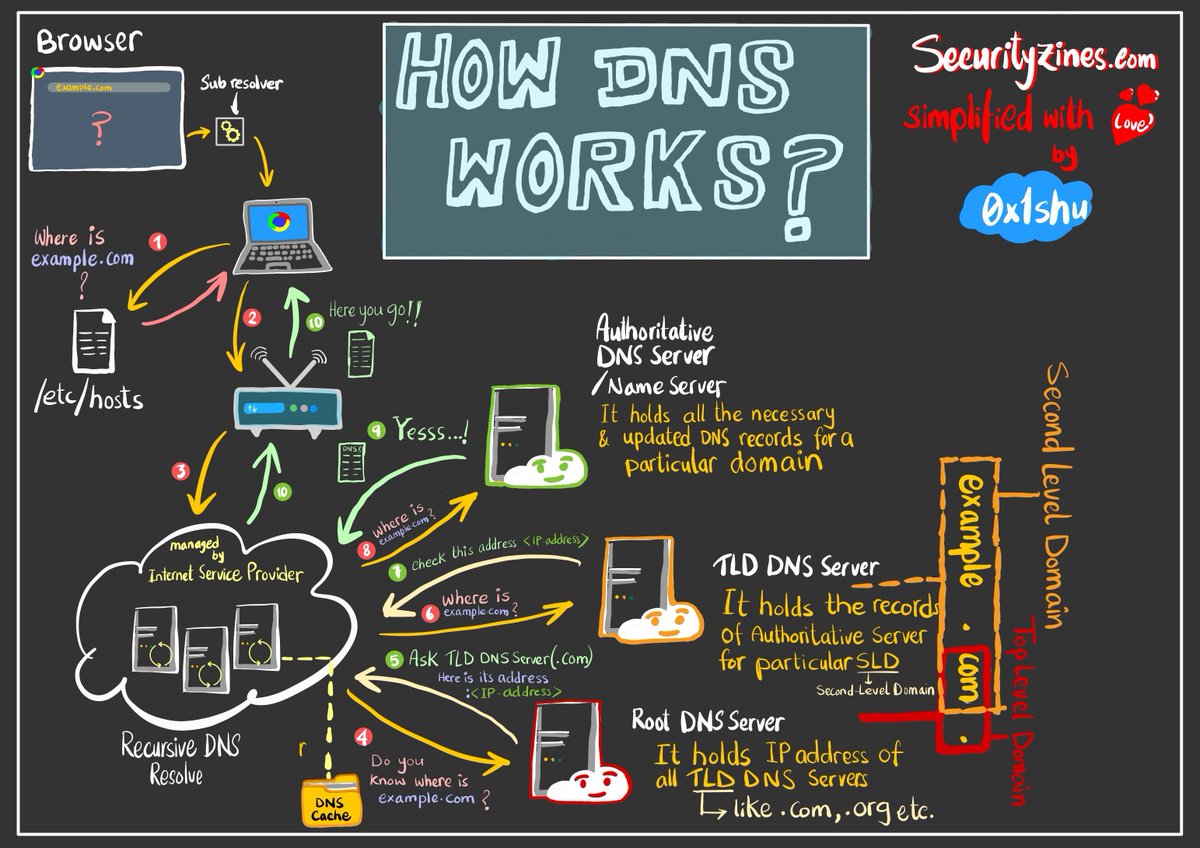 Browser
example.com
?
Sub resolver
HOW DNS
WORKS?
Securityzines.com
simplified with
Love
by
0x1shu
Where is
example.com
?
1
/etc/hosts
2
10
Here you go!!
3
10
9
Yesss...!
DNS
Authoritative
DNS Server
/Name Server
It holds all the necessary
& updated DNS records for a
particular domain
8
Where is
example.com?
7
check this address <IP-address>
6
Where is
example.com?
TLD DNS Server
It holds the records
of Authoritative Server
for particular SLD
Second-Level Domain
managed
by
Internet Service Provider
Recursive DNS
Resolve
r
DNS
Cache
5
Ask TLD DNS Server(.com)
Here is its address
:<IP-address>
4
Do you
know where is
example.com?
Root DNS Server
It holds IP address of
all TLD DNS Servers
like .com, .org etc.
example
.
com
.
Second Level Domain
Top Level Domain